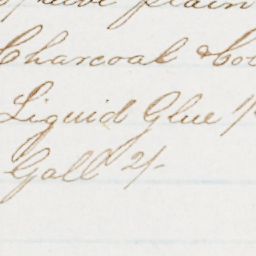 plain
Charcoal &
Liquid Glue 1/
Gall 2/-